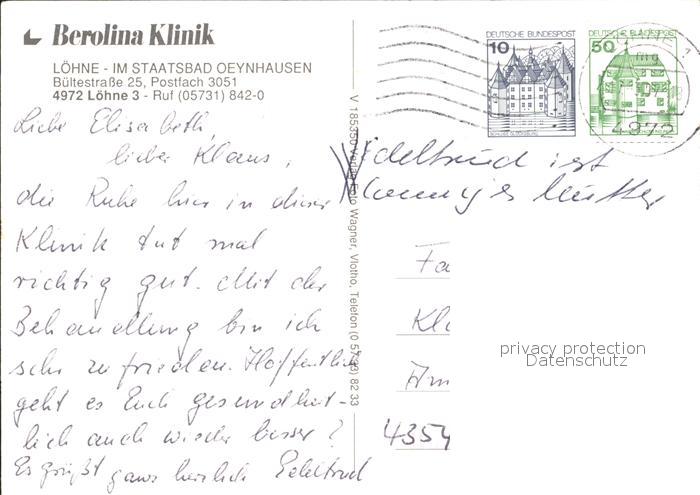 Berolina Klinik
LÖHNE - IM STAATSBAD OEYNHAUSEN
Bültestraße 25, Postfach 3051
4972 Löhne 3 - Ruf (05731) 842-0
Liebe Elisabeth,
lieber Klaus,
die Ruhe hier in dieser
Klinik tut mal
richtig gut. Mit der
Behandlung bin ich
sehr zufrieden. Hoffentlich
geht es Euch gesundheit-
lich auch wieder besser?
Es grüßt ganz herzlich Edeltrud
V 185350 Verlag Wagner, Vlotho, Telefon (0 57 33) 82 33
DEUTSCHE BUNDESPOST
10
SCHLOSS GLÜCKSBURG
DEUTSCHE BUNDESPOST
50
4972
Edeltrud ist
Mutter
Fa
Kl
Am
4354
privacy protection
Datenschutz